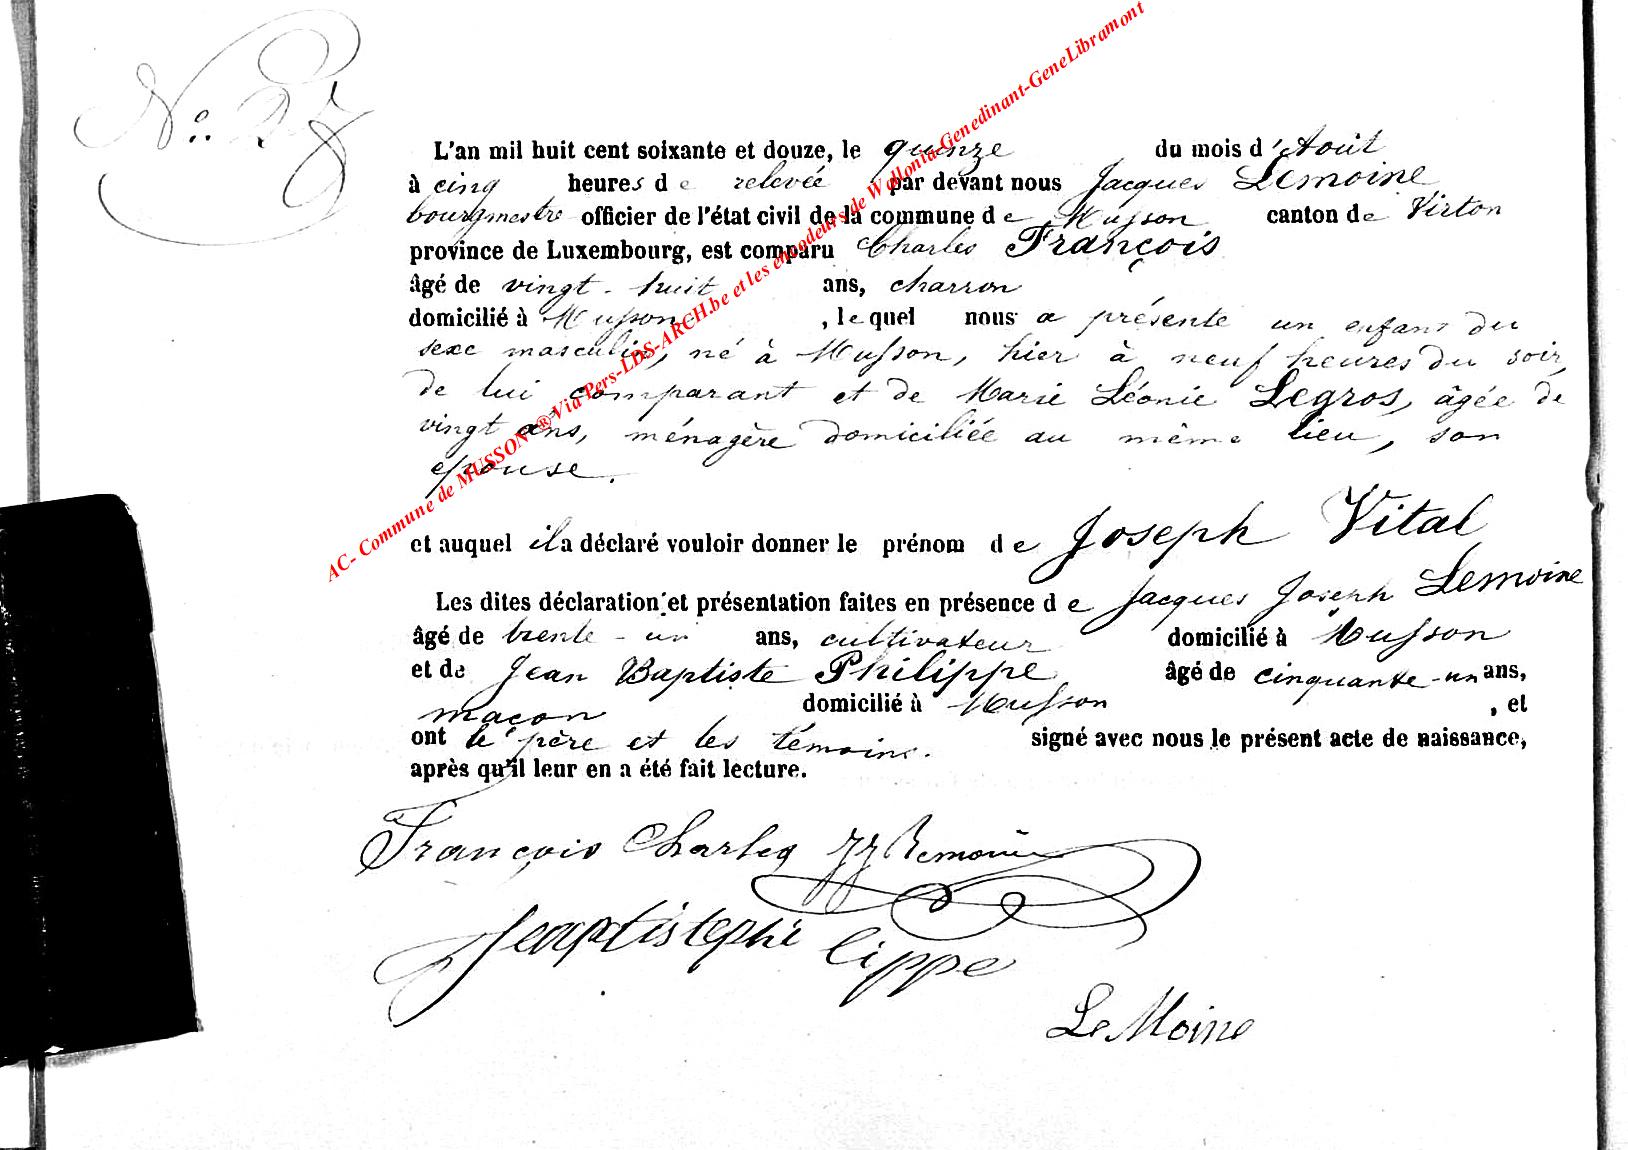 N° 27
L'an mil huit cent soixante et douze, le quinze du mois d'Août
à cinq heures de relevée par devant nous Jacques Lemoine
bourgmestre officier de l'état civil de la commune de Musson canton de Virton
province de Luxembourg, est comparu Charles François
âgé de vingt-huit ans, charron
domicilié à Musson, lequel nous a présenté un enfant du
sexe masculin, né à Musson, hier à neuf heures du soir,
de lui comparant et de Marie Léonie Legros, âgée de
vingt ans, ménagère domiciliée au même lieu, son
épouse.
et auquel il a déclaré vouloir donner le prénom de Joseph Vital
Les dites déclaration et présentation faites en présence de Jacques Joseph Lemoine
âgé de trente-un ans, cultivateur domicilié à Musson
et de Jean Baptiste Philippe âgé de cinquante-un ans,
maçon domicilié à Musson, et
ont le père et les témoins. signé avec nous le présent acte de naissance,
après qu'il leur en a été fait lecture.
François Charles JJ Lemoine
Jeaptistephi lippe
Le Moine
AC- Commune de MUSSON-®Via Pers-LDS-ARCH.be et les encodeurs de Wallonia-Genedinant-GeneLibramont